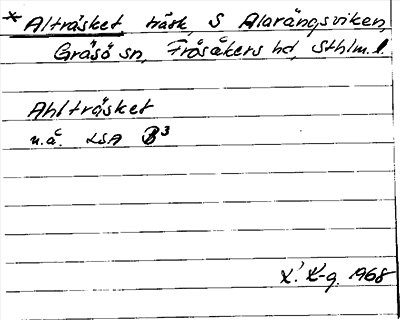 * Alträsket träsk, S Alarängsviken,
Gräsö sn, Frösåkers hd, Sthlm. l.
Ahlträsket
u.å. LSA B³
1968